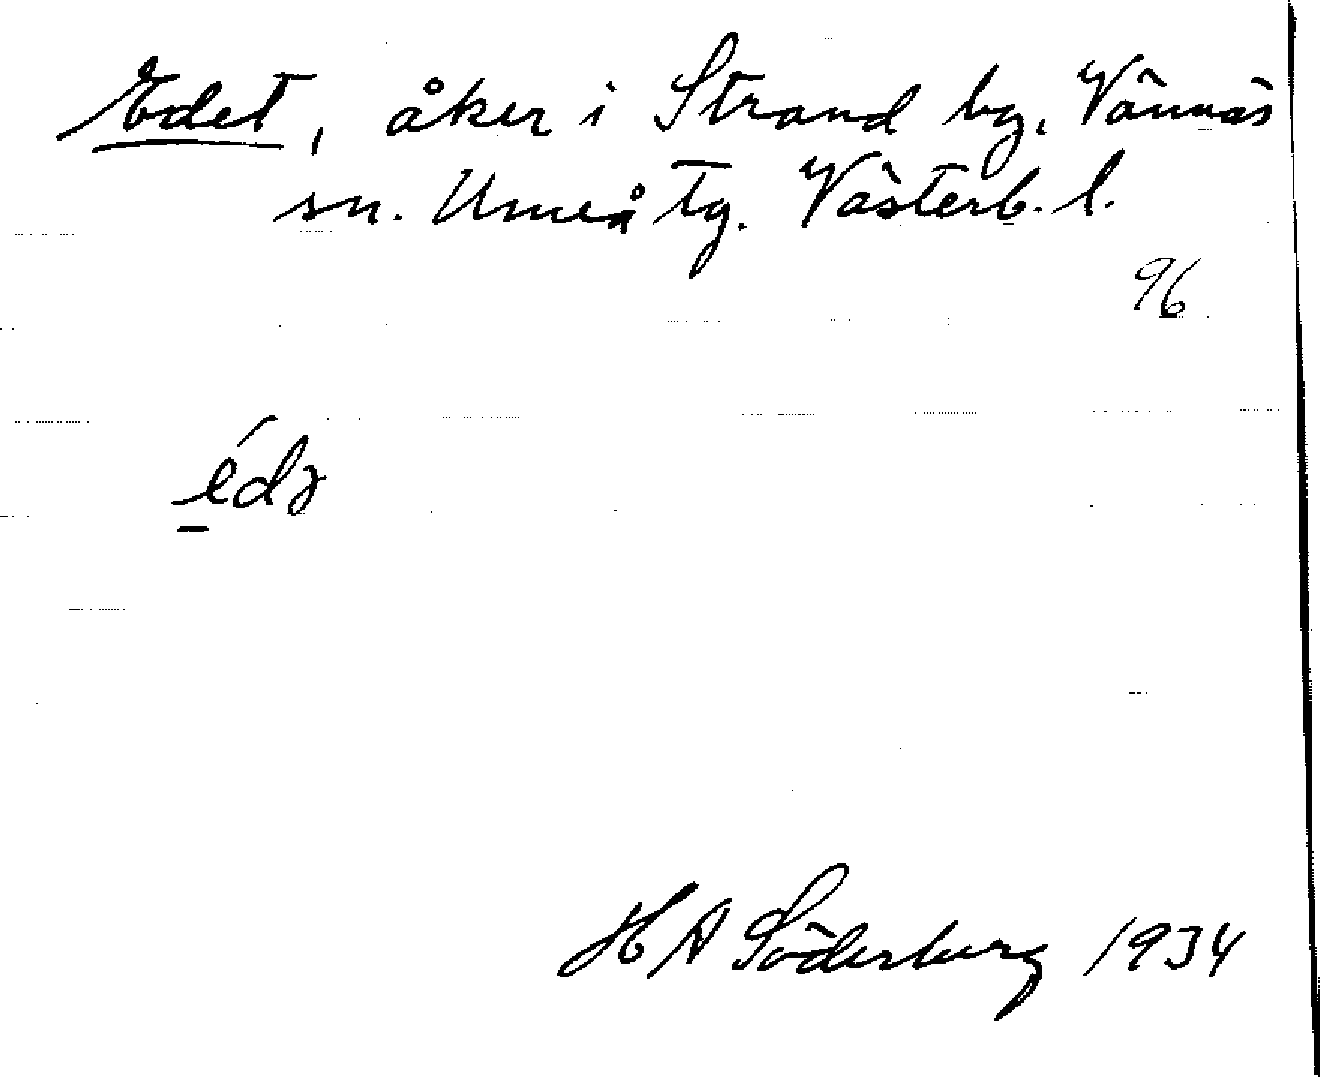 Edet, åker i Strand by, Vännäs
sn. Umeå tg. Västerb. l.
96
édə
H A Söderberg 1934